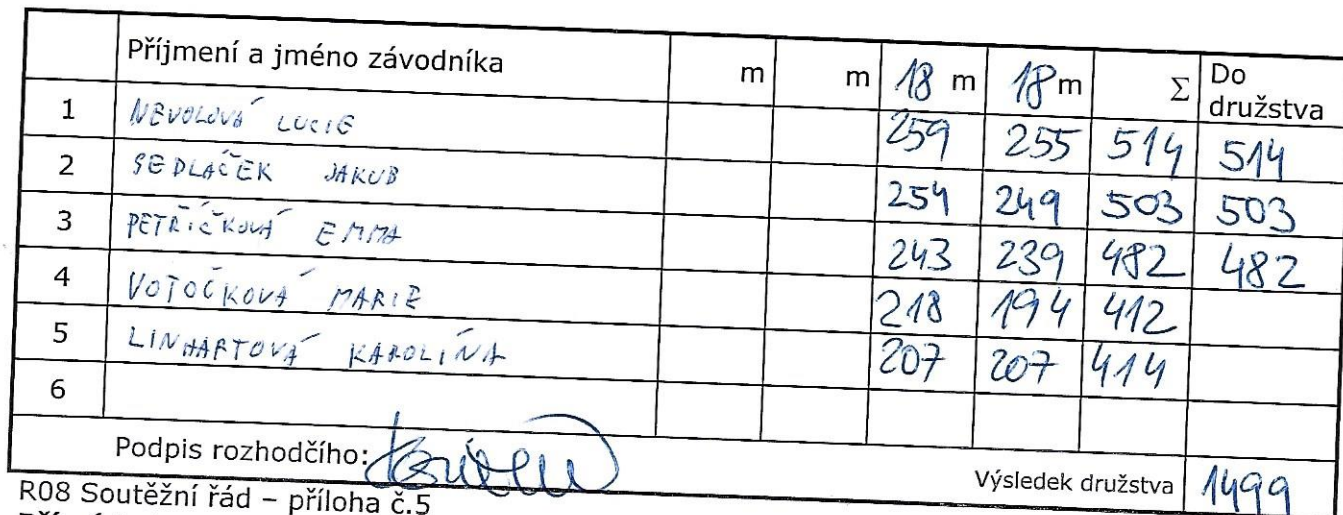 Příjmení a jméno závodníka m m 18 m 18 m Σ Do družstva
1 NEVOLOVÁ LUCIE 259 255 514 514
2 SEDLÁČEK JAKUB 254 249 503 503
3 PETŘÍČKOVÁ EMMA 243 239 482 482
4 VOTOČKOVÁ MARIE 218 194 412
5 LINHARTOVÁ KAROLÍNA 207 207 414
6
Podpis rozhodčího: Výsledek družstva 1499
R08 Soutěžní řád – příloha č.5